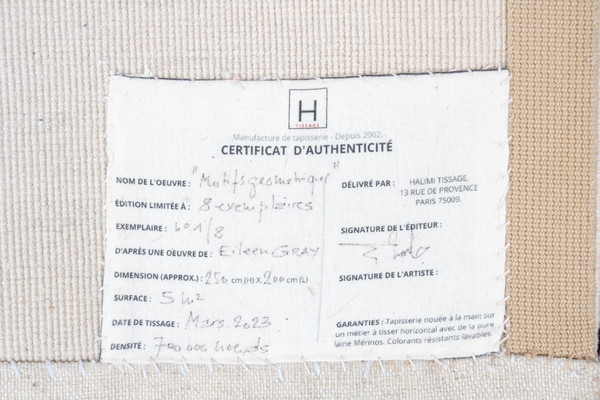 H
TISSAGE
Manufacture de tapisserie - Depuis 2002.
CERTIFICAT D'AUTHENTICITÉ
NOM DE L'OEUVRE : "Motifs geometriques"
ÉDITION LIMITÉE À : 8 exemplaires
EXEMPLAIRE : N° 1/8
D'APRÉS UNE OEUVRE DE : Eileen GRAY
DIMENSION (APPROX.) : 250 cm (H) X 200 cm (L)
SURFACE : 5 m²
DATE DE TISSAGE : Mars. 2023.
DENSITÉ : 700 000 noeuds
DÉLIVRÉ PAR : HALIMI TISSAGE.
13 RUE DE PROVENCE
PARIS 75009.
SIGNATURE DE L'ÉDITEUR :
SIGNATURE DE L'ARTISTE :
GARANTIES : Tapisserie nouée à la main sur
un métier à tisser horizontal avec de la pure
laine Mérinos. Colorants résistants lavables.